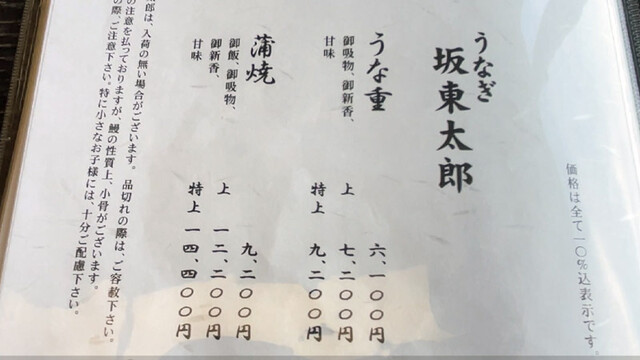 価格は全て一〇%込表示です
うなぎ
坂東太郎
うな重
御吸物、御新香、
甘味
六、一〇〇円
上 七、二〇〇円
特上 九、二〇〇円
蒲焼
御飯、御吸物、
御新香、
甘味
九、二〇〇円
上 一二、二〇〇円
特上 一四、四〇〇円
郎は、入荷の無い場合がございます。 品切れの際は、ご容赦下さい。
の注意を払っておりますが、鰻の性質上、小骨がございます。
の際、ご注意下さい。特に小さなお子様には、十分ご配慮下さい。